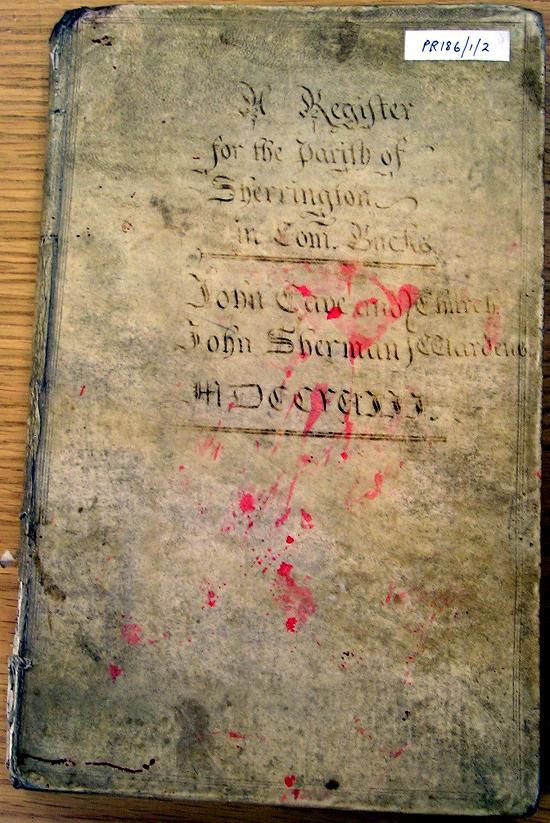 PR186/1/2
A Register
for the Parish of
Sherrington
in Com. Bucks
John Cave and } Church
John Sherman } Wardens
MDCCXXIII.